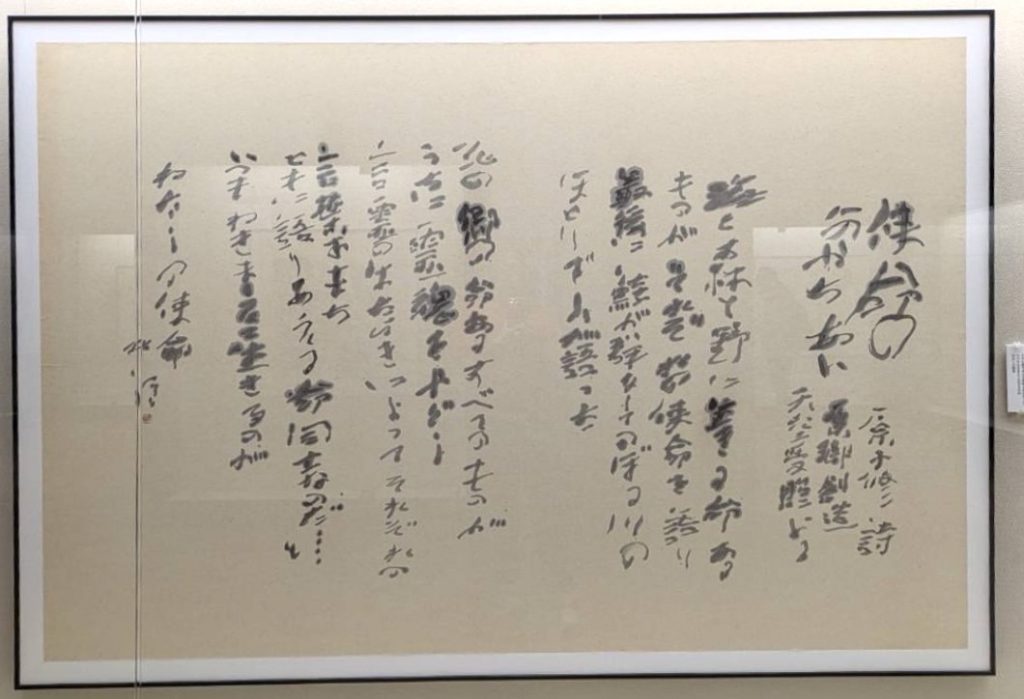 使命の
分かちあい
原子修 詩
原郷創造
海と森と野に生きる命ある
ものがそれぞれ使命を語り
最後に鮭が群をなしのぼる川の
ほとりで人が語った
この郷の命あるすべてのものが
うちに霊魂をやどし
言霊のはたらきによってそれぞれの
言葉をもち
ともに語りあえる命同志なのだ……と
いつもわきまえて生きるのが
わたしの使命